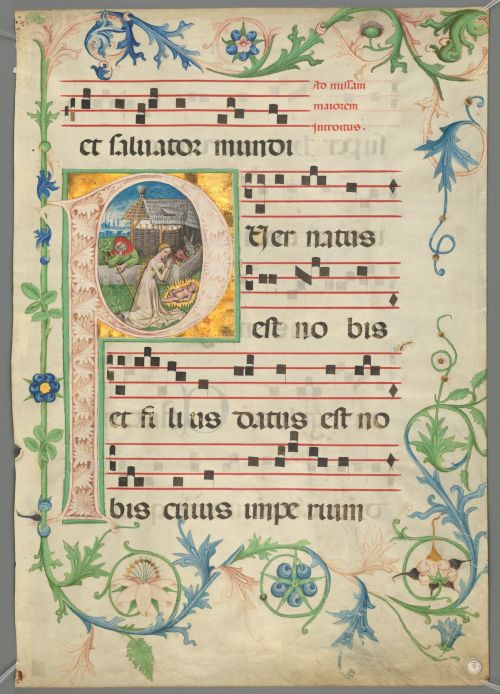 Ad missam
maiorem
Introitus.
et saluator mundi
PUer natus
est no bis
et fi li us datus est no
bis cuius impe rium